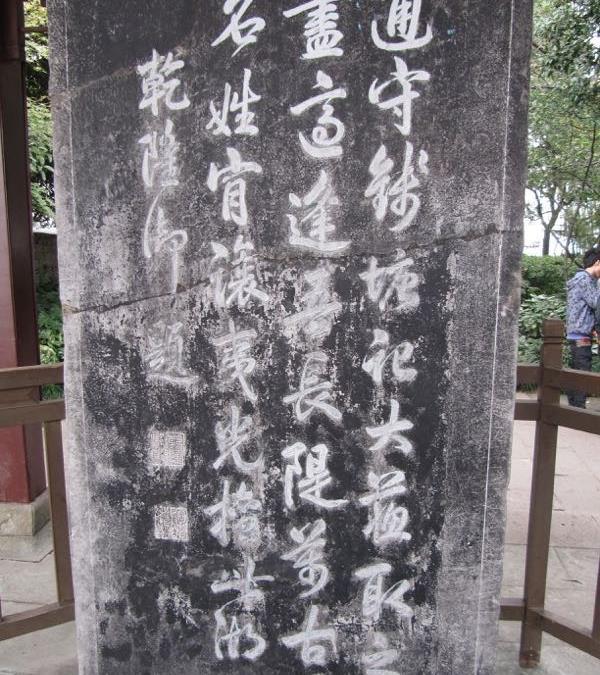 通守錢塘記大蘇取之
盡適逢吾長隄萬古
名姓肎讓夷光擅此湖
乾隆御題